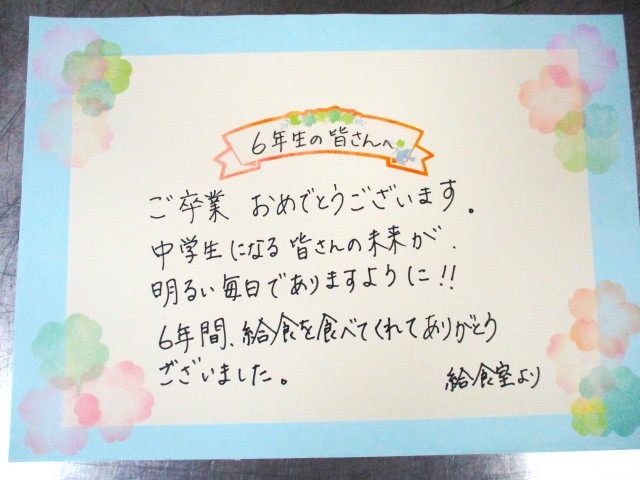 6年生の皆さんへ
ご卒業 おめでとうございます。
中学生になる皆さんの未来が、
明るい毎日でありますように!!
6年間、給食を食べてくれてありがとう
ございました。
給食室より